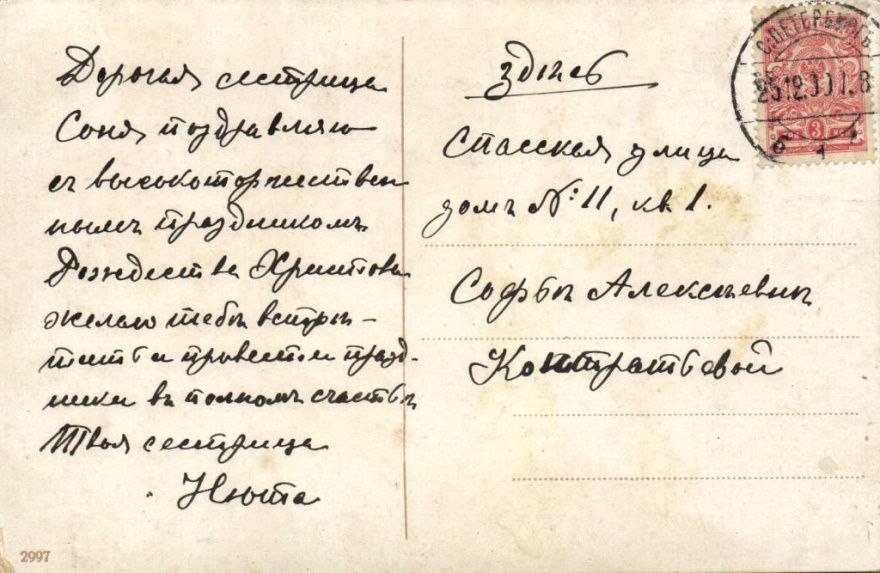 Дорогая сестрица
Соня, поздравляю
съ высокоторжествен
нымъ праздникомъ
Рождества Христова
желаю тебѣ встрѣ–
тить и провести празд-
ники въ полномъ счастьѣ
Твоя сестрица
Нюта
2997
С.ПЕТЕРБУРГЪ
25.12.
3
Здѣсь
Спасская улица
домъ №11, кв 1.
Софьѣ Алексѣевнѣ
Кондратьевой